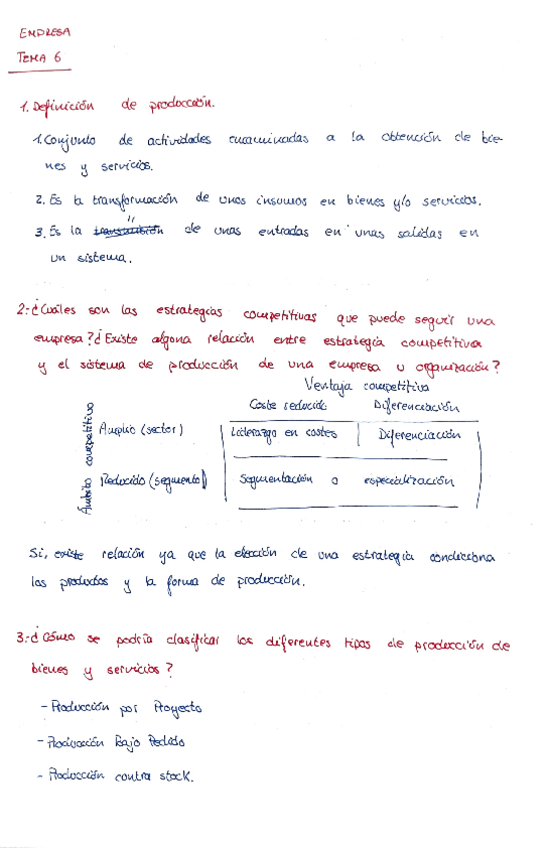 EMPRESA
TEMA 6
1. Definición de producción.
1. Conjunto de actividades encaminadas a la obtención de bie-
nes y servicios.
2. Es la transformación de unos insumos en bienes y/o servicios.
"
3. Es la de unas entradas en unas salidas en
un sistema.
2.- ¿Cuáles son las estrategias competitivas que puede seguir una
empresa? ¿Existe alguna relación entre estrategia competitiva
y el sistema de producción de una empresa u organización?
Ventaja competitiva
Coste reducido Diferenciación
Ámbito competitivo
Amplio (sector) Liderazgo en costes Diferenciación
Reducido (segmento) Segmentación o especialización
Si, existe relación ya que la elección de una estrategia condiciona
los productos y la forma de producción.
3.- ¿Cómo se podría clasificar los diferentes tipos de producción de
bienes y servicios?
- Producción por Proyecto
- Producción Bajo Pedido
- Producción contra stock.